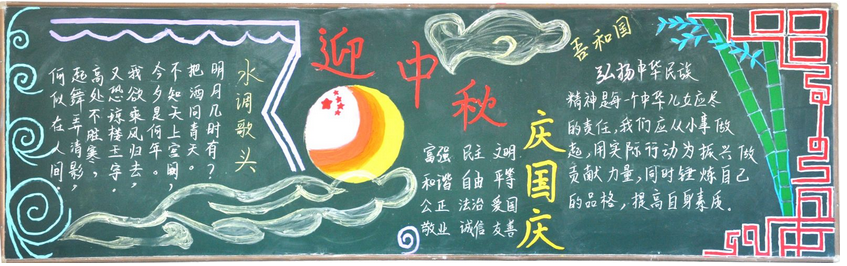 水调歌头
明月几时有？
把酒问青天。
不知天上宫阙，
今夕是何年。
我欲乘风归去，
又恐琼楼玉宇。
高处不胜寒，
起舞弄清影，
何似在人间。
迎中秋
富强 民主 文明
和谐 自由 平等
公正 法治 爱国
敬业 诚信 友善
庆国庆
吾和国
弘扬中华民族
精神是每一个中华儿女应尽
的责任，我们应从小事做
起，用实际行动为振兴做
贡献力量，同时锤炼自己
的品格，提高自身素质。